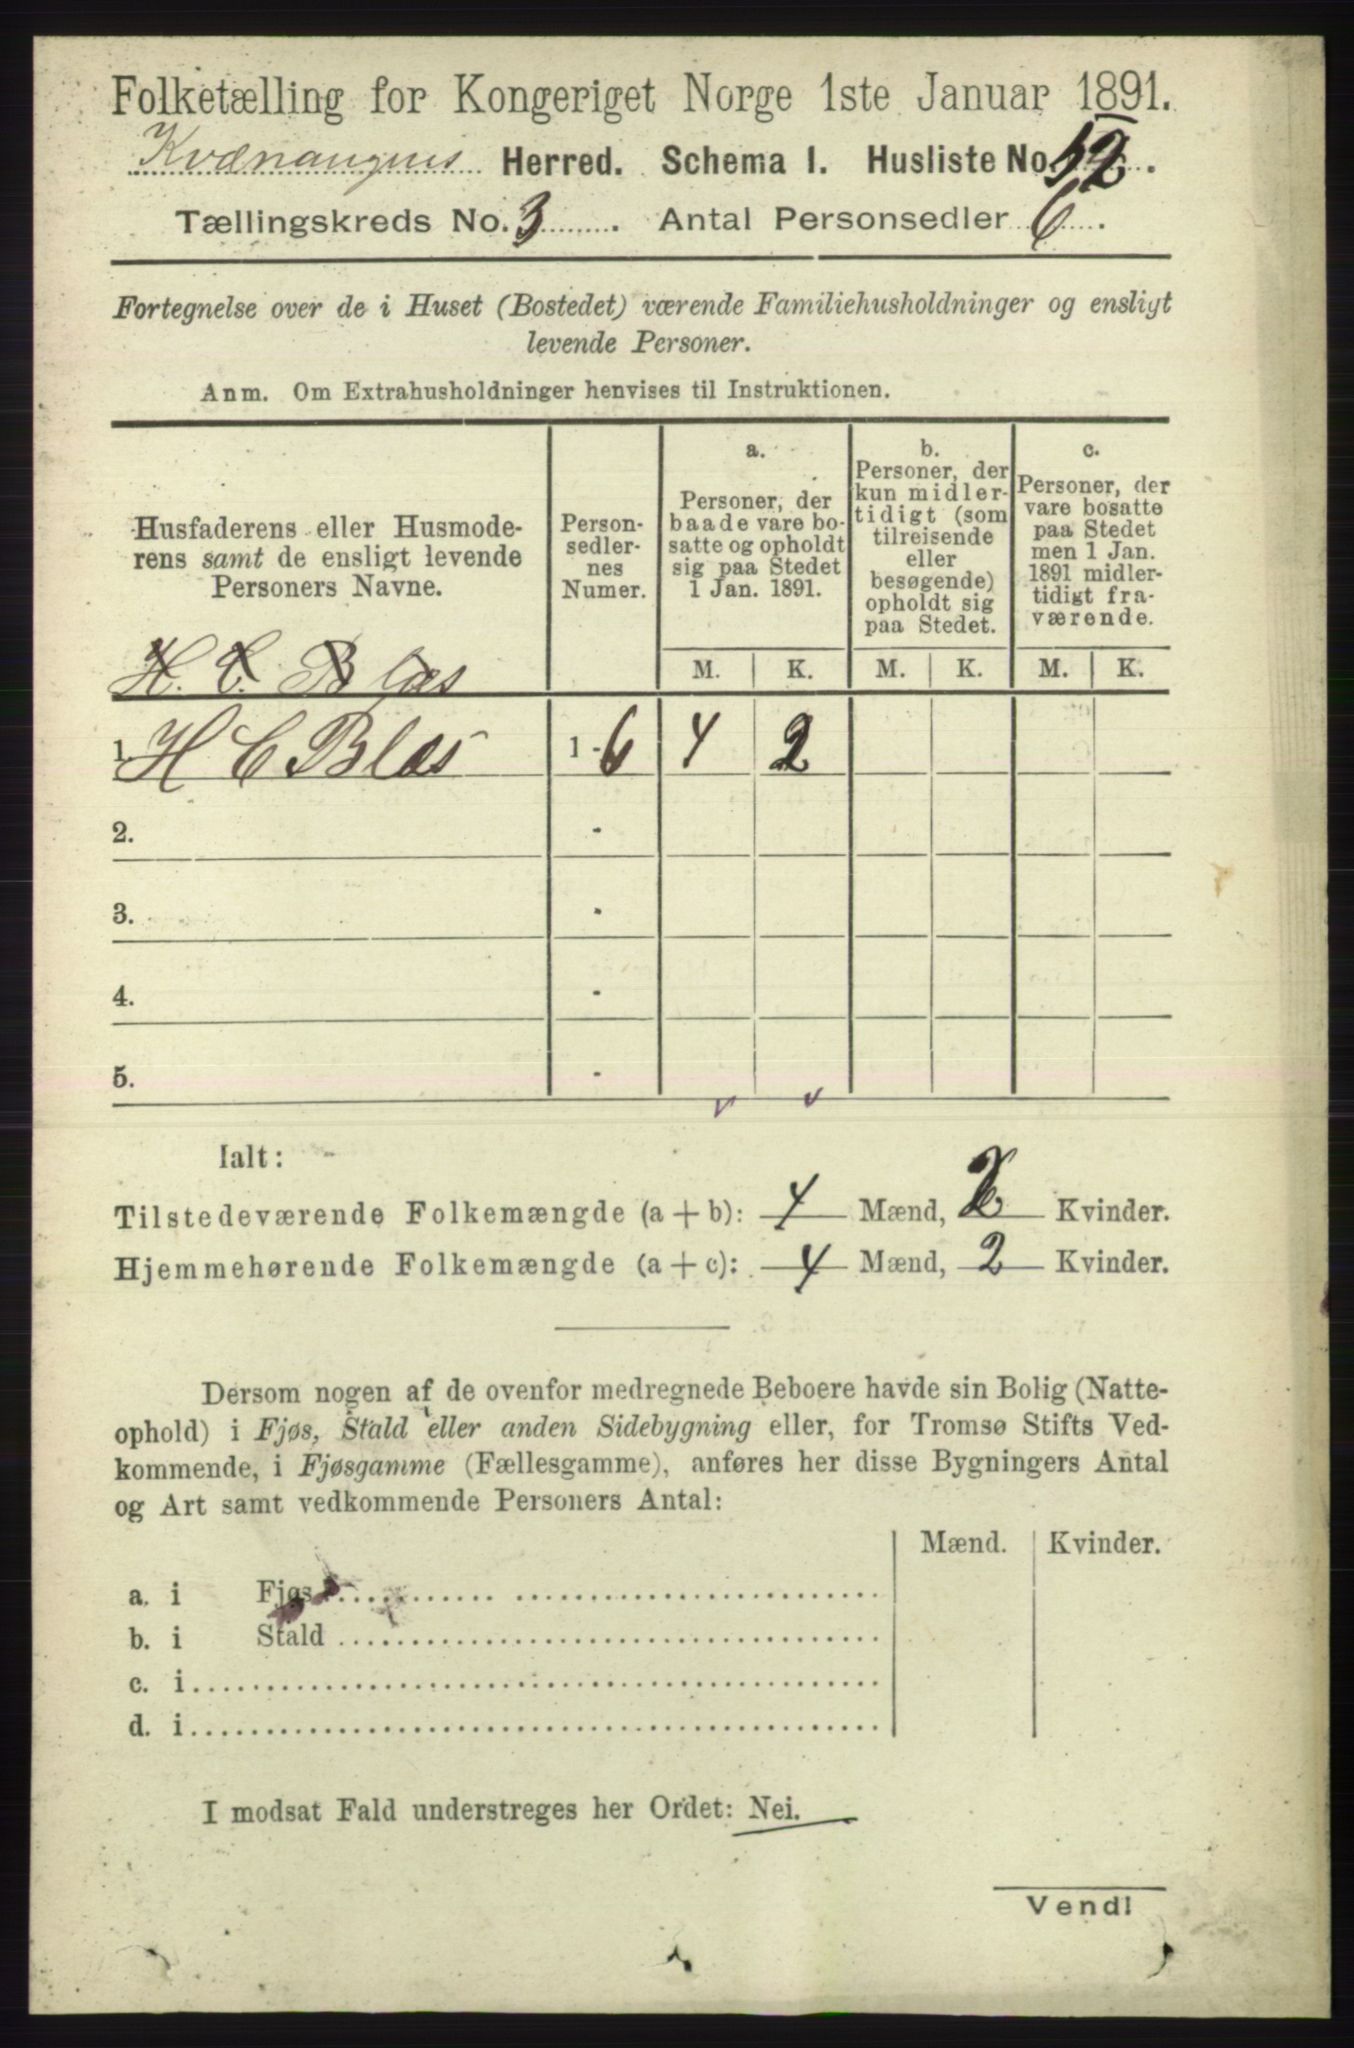 Folketælling for Kongeriget Norge 1ste Januar 1891.
Kvænangens Herred. Schema I. Husliste No. 52.
Tællingskreds No. 3. Antal Personsedler 6.
Fortegnelse over de i Huset (Bostedet) værende Familiehusholdninger og ensligt
levende Personer.
Anm. Om Extrahusholdninger henvises til Instruktionen.
Husfaderens eller Husmode-
rens samt de ensligt levende
Personers Navne.
H. C. Blæs
Person-
sedler-
nes
Numer.
a.
Personer, der
baade vare bo-
satte og opholdt
sig paa Stedet
1 Jan. 1891.
M. K.
b.
Personer, der
kun midler-
tidigt (som
tilreisende
eller
besøgende)
opholdt sig
paa Stedet.
M. K.
c.
Personer, der
vare bosatte
paa Stedet
men 1 Jan.
1891 midler-
tidigt fra-
værende.
M. K.
1. H C Blæs 1 - 6 4 2
2. -
3. -
4. -
5. -
Ialt:
Tilstedeværende Folkemængde (a + b): 4 Mænd, 2 Kvinder.
Hjemmehørende Folkemængde (a + c): 4 Mænd, 2 Kvinder.
Dersom nogen af de ovenfor medregnede Beboere havde sin Bolig (Natte-
ophold) i Fjøs, Stald eller anden Sidebygning eller, for Tromsø Stifts Ved-
kommende, i Fjøsgamme (Fællesgamme), anføres her disse Bygningers Antal
og Art samt vedkommende Personers Antal:
Mænd. Kvinder.
a. i Fjøs
b. i Stald
c. i
d. i
I modsat Fald understreges her Ordet: Nei.
Vend!